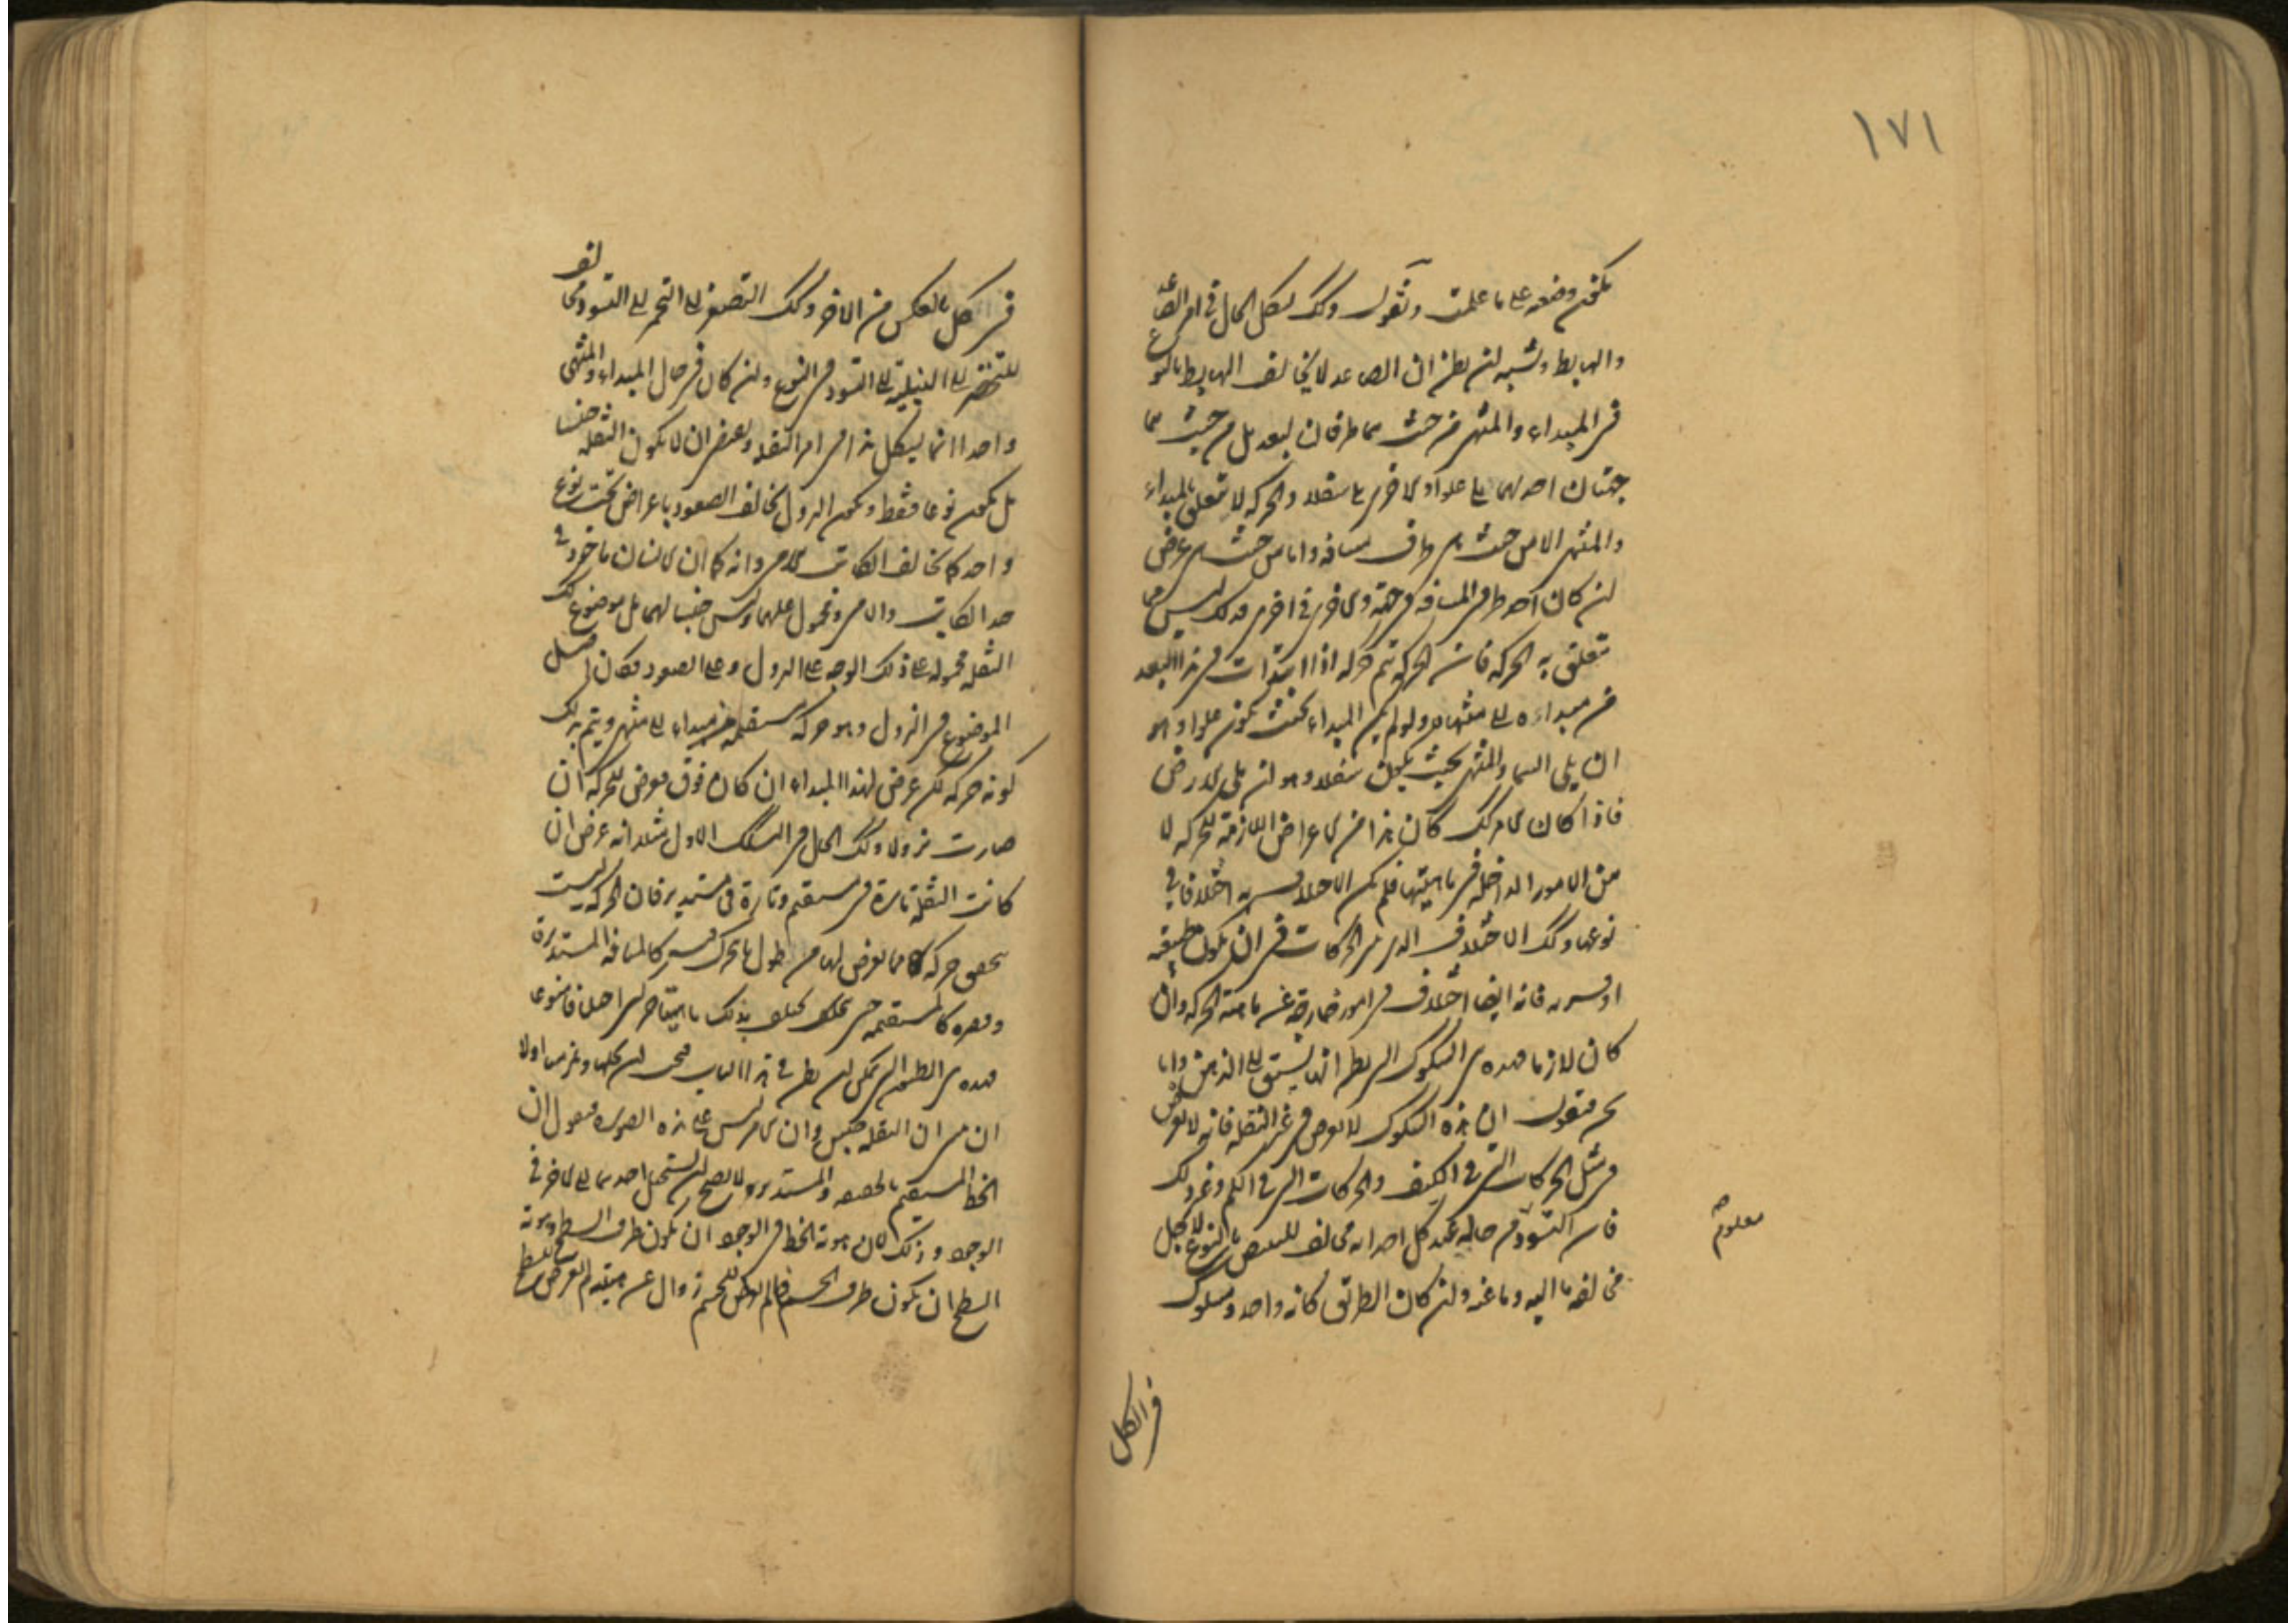 ١٧١
يمكن وضعه على ما علمت ونقول وكك لكل الحال في امر الصاعد
والهابط ويشبه ان يظن ان الصاعد لا يخالف الهابط بالنوع
في المبداء والمنتهى من حيث هما طرفان لبعد بل من حيث هما
جهتان احدهما على علو او الاخرى على سفل والحركة لا تتعلق بالمبداء
والمنتهى الا من حيث هي طرف مسافة واما من حيث عرض
ان كان احد طرفي المسافة في جهة والاخرى في اخرى فذلك ليس مما
تتعلق به الحركة فان الحركة تتم حركة اذا ابتدأت في هذا البعد
من مبداءه الى منتهاه ولو لم يكن المبداء بحيث يكون علوا وهو
ان يلي السماء والمنتهى بحيث يكون سفلا وهو ان يلي الارض
فاذا كان الامر كك كان هذا من الاعراض اللازمة للحركة لا
من الامور الداخلة في ماهيتها فلم يكن الاختلاف به اختلافا في
نوعها وكك الاختلاف الذي بين الحركات في ان يكون طبيعية
او قسرية فانه ايضا اختلاف في امور خارجة عن ماهية الحركة وان
كان لازما فهذه هي الشكوك التي يظن انها يسبق الى الذهن واما
نحن فنقول ان هذه الشكوك لا تعرض في غير النقلة فانه لا يعرض
في مثل الحركات التي في الكيف والحركات التي في الكم وغير ذلك
فان التسود في حاله عند كل احد انه مخالف للتبيض بالنوع لاجل
مخالفة ما اليه وما عنه وان كان الطريق كانه واحد وسلوك
معلوم صح
في الكل
في الكل بالعكس من الاخر وكك التصفر الى التحمر الى التسود مخالف
للتخضر الى النيلية الى التسود في النوع وان كان في حال المبداء والمنتهى
واحدا انما يشكل هذا في امر النقلة ويعرض ان لا يكون النقلة جنسا
بل يكون نوعا فقط ويكون النزول يخالف الصعود باعراض تحت نوع
واحد كما يخالف الكاتب الامي وانه كما ان الانسان ماخوذ في
حد الكاتب والامي ومحمول عليهما وليس جنسا لهما بل موضوع كك
النقلة محمولة على ذلك الوجه على النزول وعلى الصعود فكان اصل
الموضوع في النزول وهو حركة مستقيمة من مبداء الى منتهى ويتم بذلك
كونه حركة لكن عرض لهذا المبداء ان كان فوق فعرض للحركة ان
صارت نزولا وكك الحال في الشك الاول مثلا انه عرض ان
كانت النقلة تارة في مستقيم وتارة في مستدير فان الحركة ليست
تختص حركة مما يعرض لها من طول ما تتحرك فيه كالمسافة المستديرة
وقصره كالمستقيمة حتى يختلف بذلك ماهيتها حتى اختلافا منوعا
فهذه هي الطنون التي يمكن ان يظن في هذا الباب فيجب ان نحلها ونبين اولا
ان النقلة جنس وان الامر ليس على هذه الصورة فنقول ان
الخط المستقيم بالحقيقة والمستدير ولا يصح ان يستحيل احدهما الى الاخر في
الوجود وذلك لان هوية الخط في الوجود ان يكون طرف السطح وهوية
السطح ان يكون طرف الجسم فما لم يعرض للجسم زوال عن هيئته لم يعرض للسطح